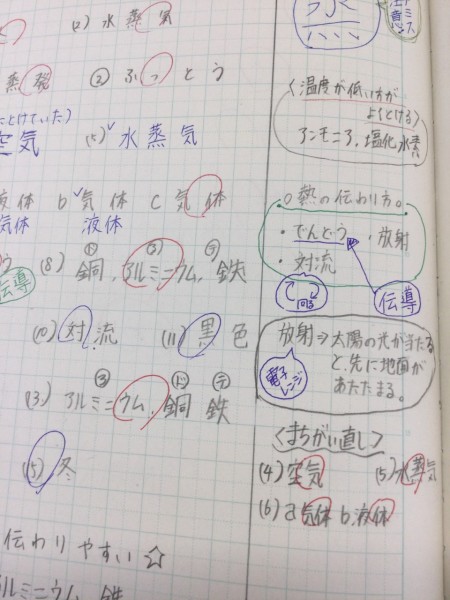 (2) 水蒸気
蒸発 (2) ふっとう
とけていた)
空気 (5) 水蒸気
液体 b 気体 c 気体
気体 液体
(8) 銅, アルミニウム, 鉄
伝導
(10) 対流 (11) 黒色
(13) アルミニウム, 銅 鉄
(15) 冬
伝わりやすい☆
アルミニウム 鉄
注意
〈温度が低い方が
よくとける〉
アンモニア, 塩化水素
○熱の伝わり方。
・でんどう ・放射
・対流
伝導
放射⇒太陽の光が当たる
と、先に地面が
あたたまる。
電子レンジ
〈まちがい直し〉
(4) 空気 (5) 水蒸気
(6) a 気体 b. 液体